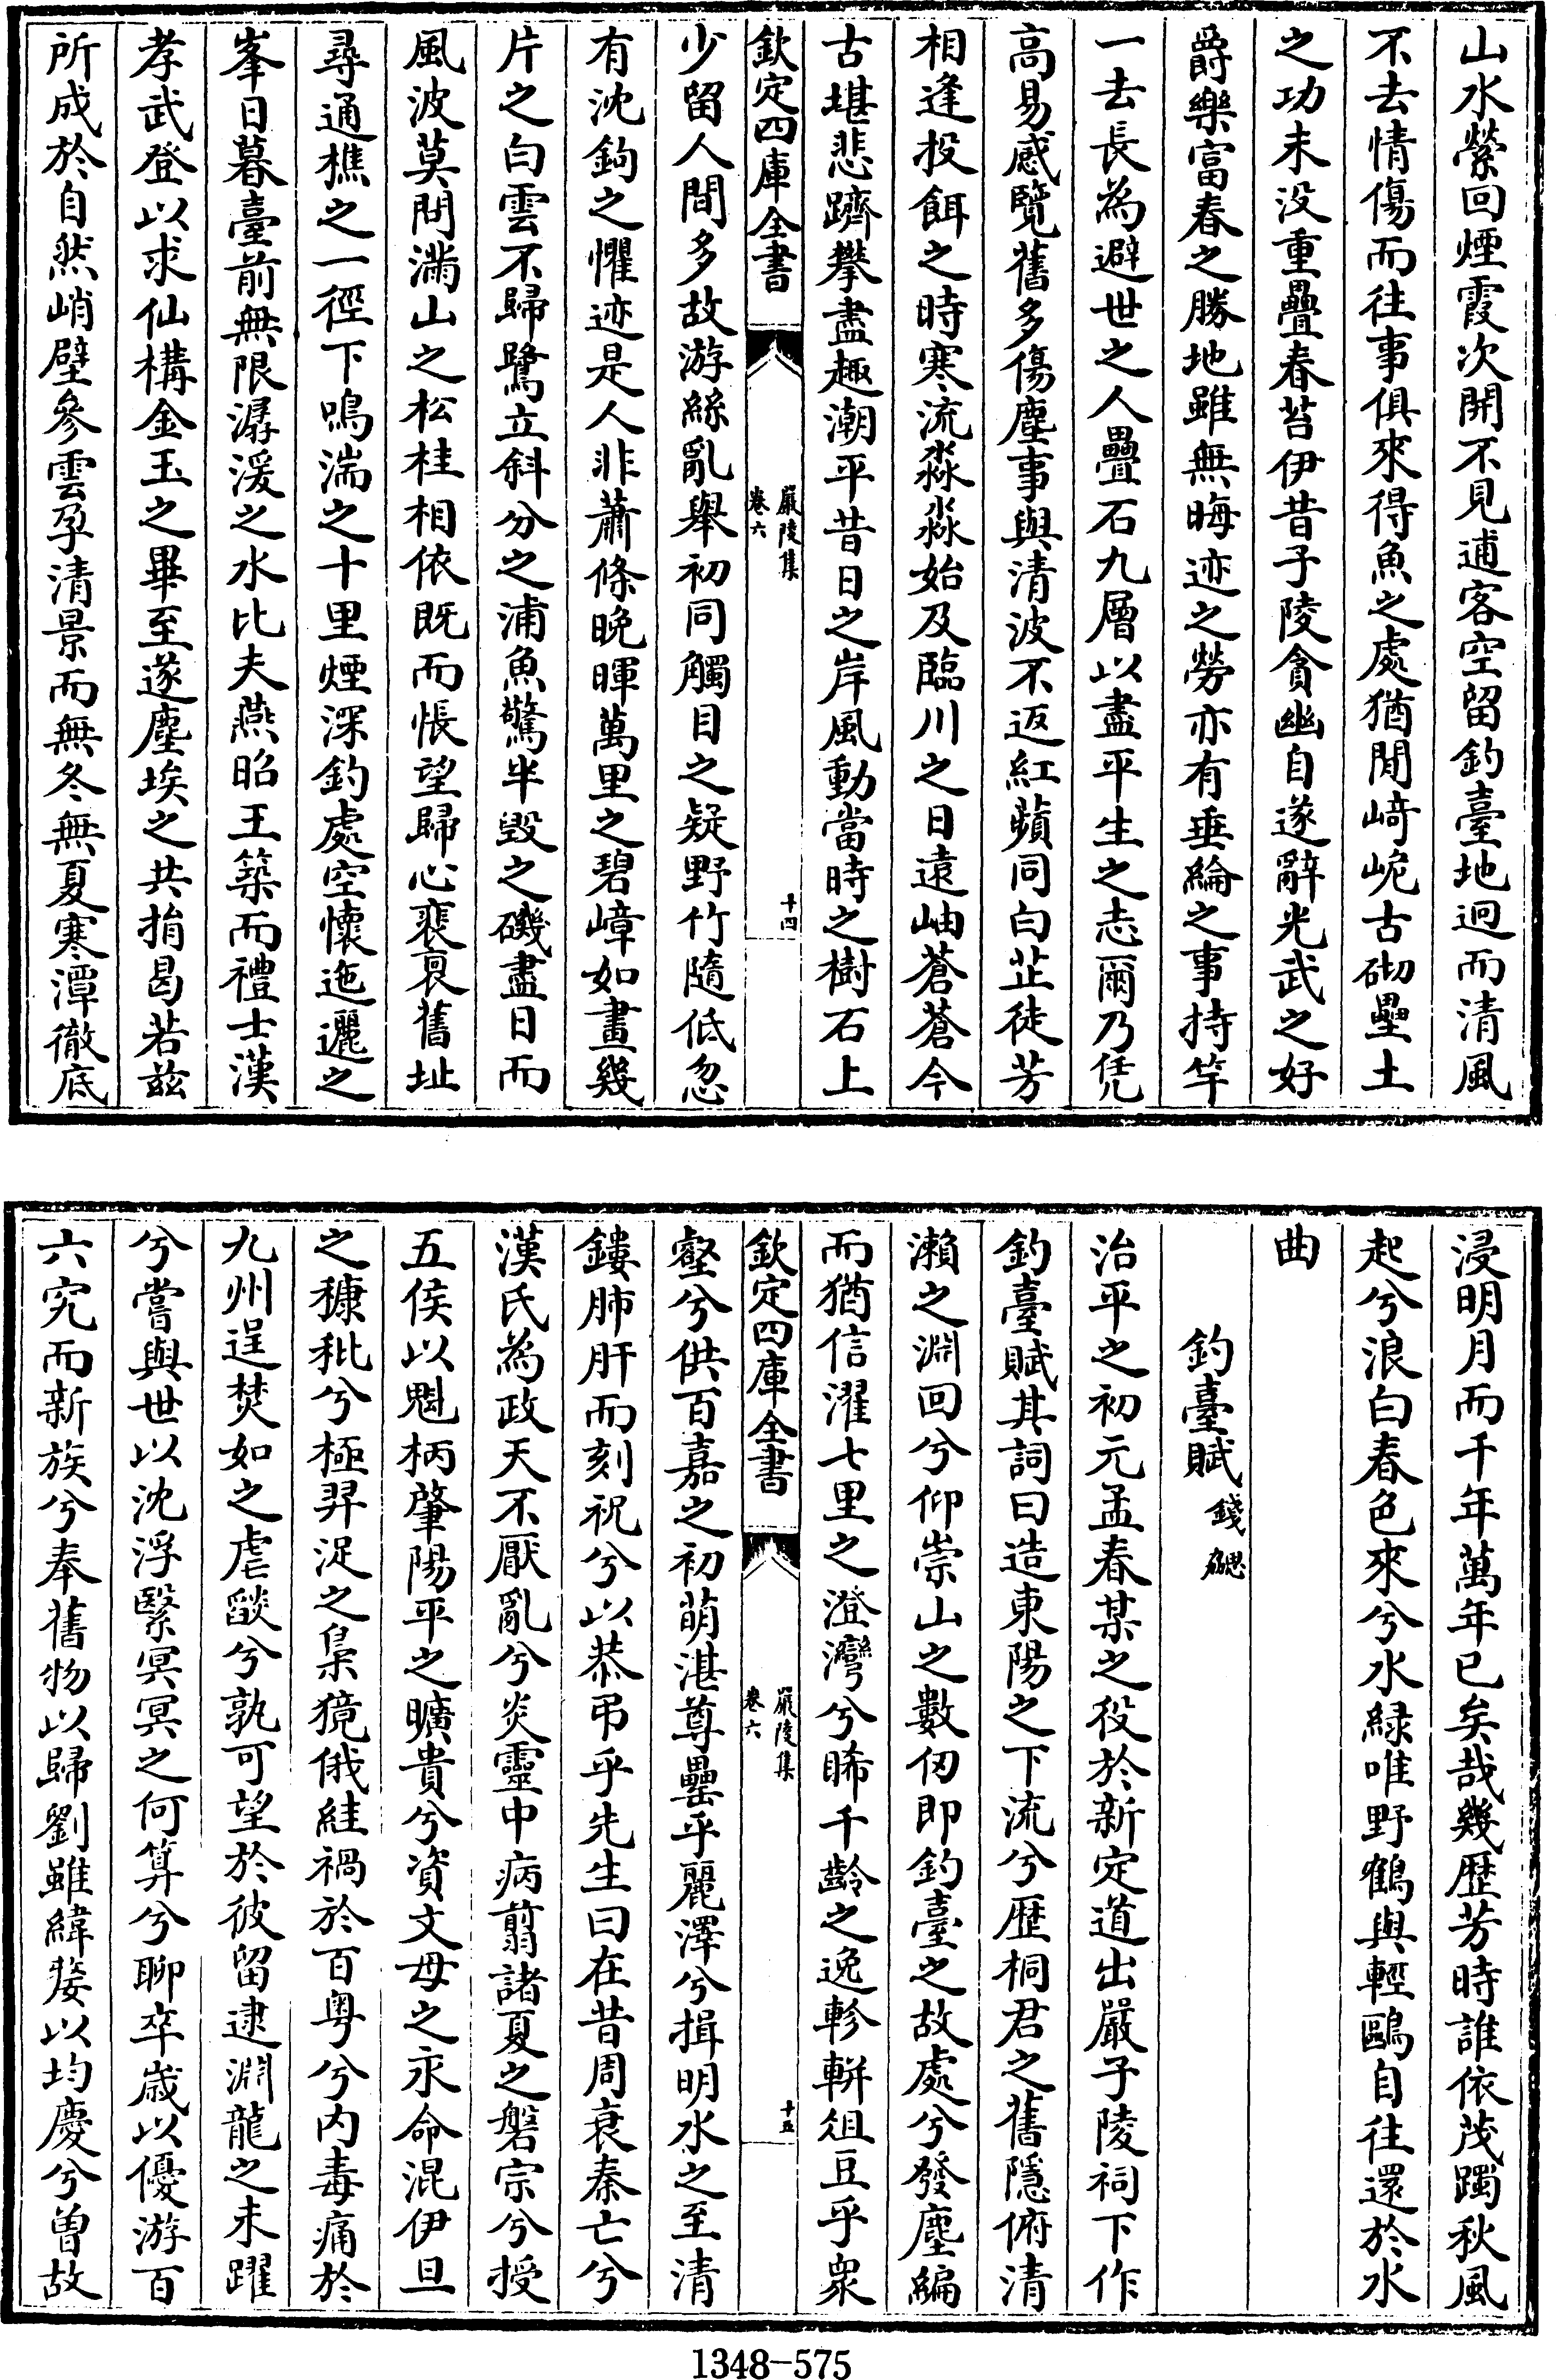 山水縈回煙霞次開不見逋客空留釣臺地迥而清風
不去情傷而往事俱來得魚之處猶閒崎㟪古砌壘土
之功未没重疊春苔伊昔子陵貪幽自遂辭光武之好
爵樂富春之勝地雖無晦迹之勞亦有垂綸之事持竿
一去長為避世之人疊石九層以盡平生之志爾乃凭
高易感覽舊多傷塵事與清波不返紅蘋同白芷徒芳
相逢投餌之時寒流淼淼始及臨川之日遠岫蒼蒼今
古堪悲躋攀盡趣潮平昔日之岸風動當時之樹石上
欽定四庫全書
嚴陵集
卷六
十四
少留人間多故游絲亂舉初同觸目之疑野竹隨低忽
有沈鉤之懼迹是人非蕭條晚暉萬里之碧嶂如畫幾
片之白雲不歸鷺立斜分之浦魚驚半毁之磯盡日而
風波莫問滿山之松桂相依既而悵望歸心裵裒舊址
尋通樵之一徑下鳴湍之十里煙深釣處空懷迤邐之
峯日暮臺前無限潺湲之水比夫燕昭王築而禮士漢
孝武登以求仙構金玉之畢至遂塵埃之共捐曷若兹
所成於自然峭壁參雲孕清景而無冬無夏寒潭徹底
浸明月而千年萬年已矣哉幾歴芳時誰依茂躅秋風
起兮浪白春色來兮水緑唯野鶴與輕鷗自往還於水
曲
釣臺賦 錢勰
治平之初元孟春某之役於新定道出嚴子陵祠下作
釣臺賦其詞曰造東陽之下流兮歴桐君之舊隱俯清
瀨之淵回兮仰崇山之數仞即釣臺之故處兮發塵編
而猶信濯七里之澄灣兮睎千齡之逸軫軿俎豆乎衆
欽定四庫全書
嚴陵集
卷六
十五
壑兮供百嘉之初萌湛尊罍乎麗澤兮揖明水之至清
鏤肺肝而刻祝兮以恭弔乎先生曰在昔周衰秦亡兮
漢氏為政天不厭亂兮炎靈中病翦諸夏之磐宗兮授
五侯以魁柄肇陽平之曠貴兮資文母之永命混伊旦
之穅秕兮極羿浞之梟獍俄絓禍於百粤兮内毒痛於
九州逞焚如之虐燄兮孰可望於彼留逮淵龍之未躍
兮嘗與世以沈浮繄冥冥之何算兮聊卒歲以優游百
六究而新族兮奉舊物以歸劉雖緯嫠以均慶兮曽故
1348-575